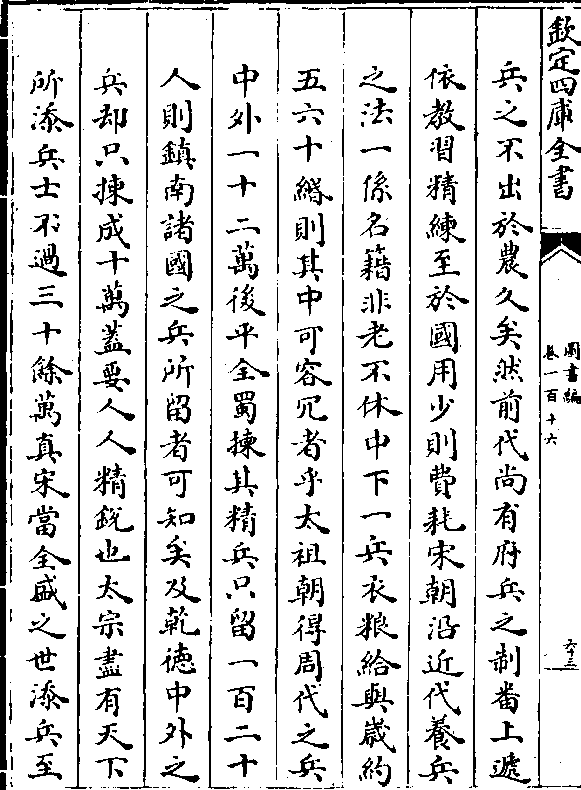 欽定四庫全書
圖書編
卷一百十六
六十三
兵之不出於農久矣然前代尚有府兵之制番上遞
依教習精練至於國用少則費耗宋朝沿近代養兵
之法一係名籍非老不休中下一兵衣粮給與嵗約
五六十緡則其中可容冗者乎太祖朝得周代之兵
中外一十二萬後平全蜀揀其精兵只留一百二十
人則鎮南諸國之兵所留者可知矣及乾徳中外之
兵却只揀成十萬葢要人人精鋭也太宗盡有天下
所添兵士不過三十餘萬真宋當全盛之世添兵至